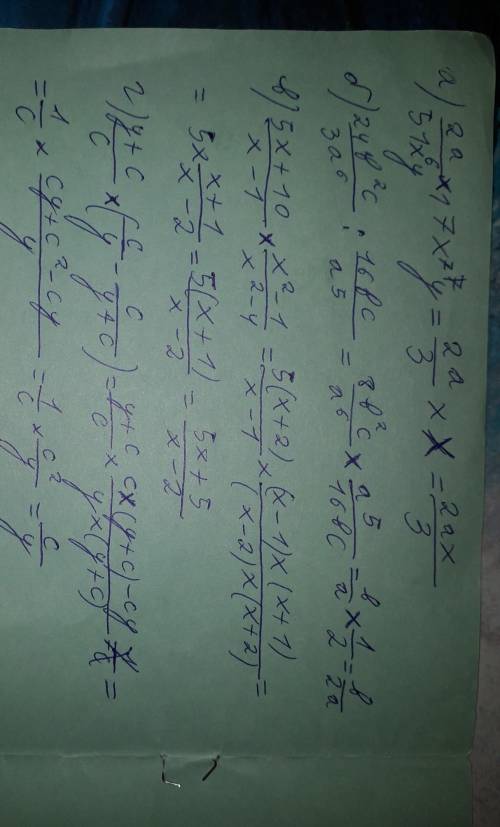 а) 2a/51x⁶y × 17x⁷y = 2a/3 × x = 2ax/3
б) 24b²c/3a⁶ : 16bc/a⁵ = 8b²c/a⁶ × a⁵/16bc = b/a × 1/2 = b/2a
в) 5x+10/x-1 × x²-1/x²-4 = 5(x+2)/x-1 × (x-1)×(x+1)/(x-2)×(x+2) =
= 5× x+1/x-2 = 5(x+1)/x-2 = 5x+5/x-2
г) y+c/c × (c/y - c/y+c) = y+c/c × c×(y+c)-cy/y×(y+c) =
= 1/c × cy+c²-cy/y = 1/c × c²/y = c/y